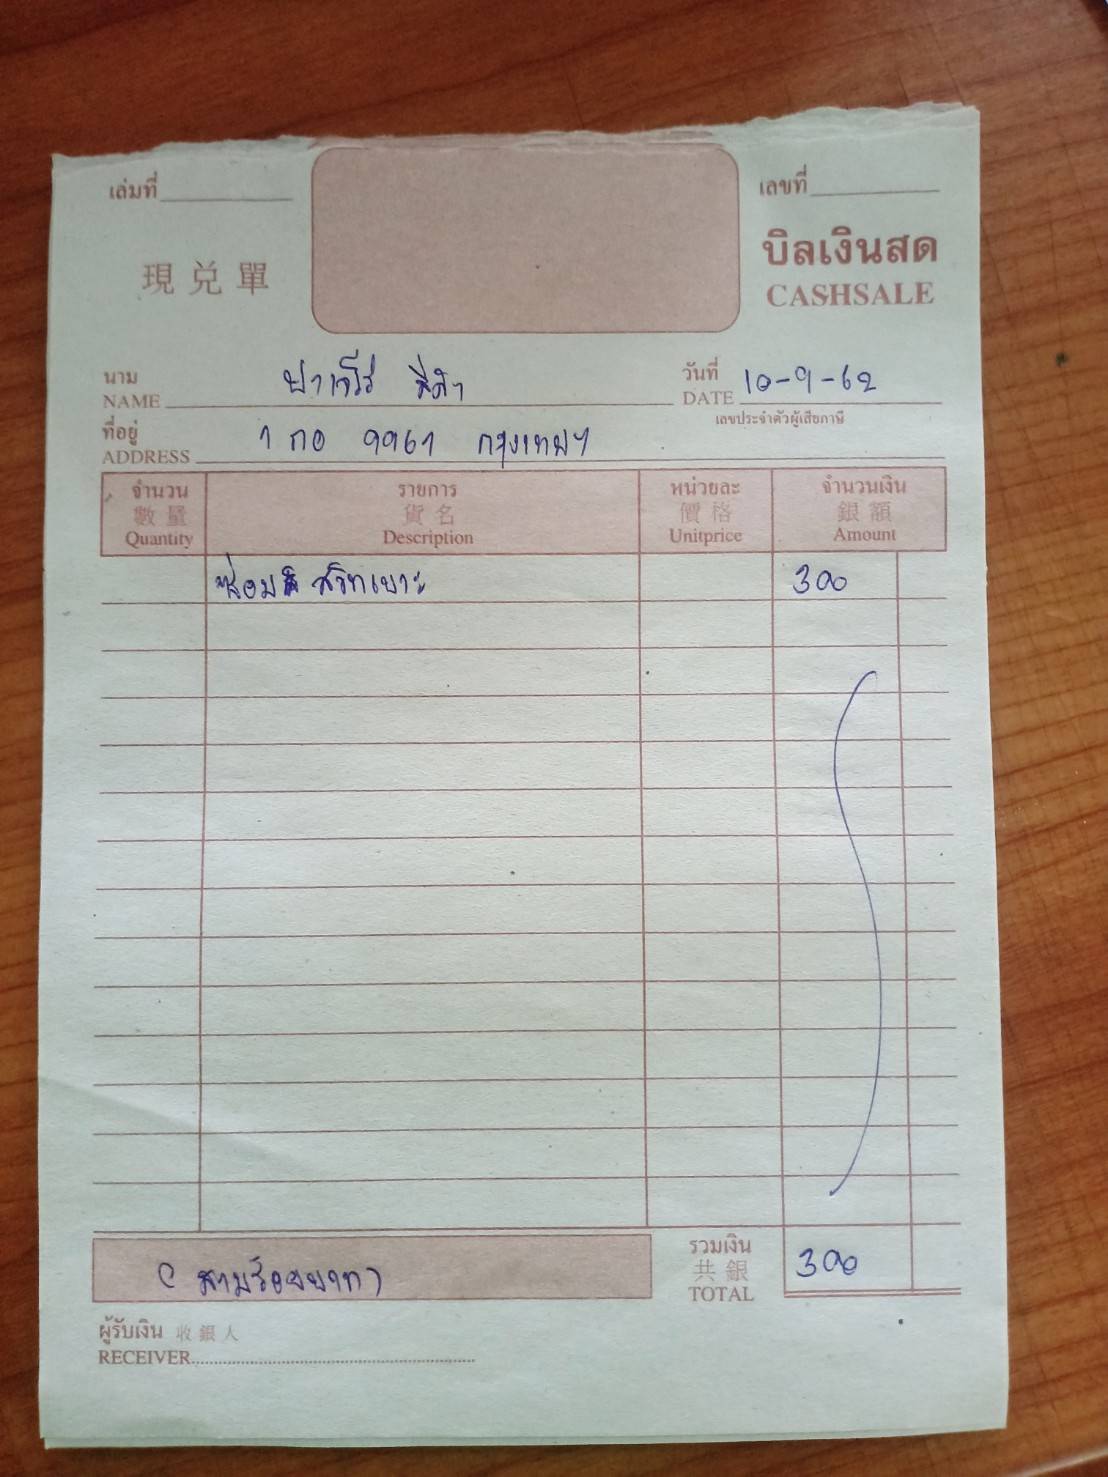 เล่มที่
เลขที่
現兑單
บิลเงินสด
CASHSALE
นาม
NAME ปาเจโร่ สีดำ
วันที่
DATE 10-9-62
เลขประจำตัวผู้เสียภาษี
ที่อยู่
ADDRESS 1 กอ 9961 กรุงเทพฯ
จำนวน รายการ หน่วยละ จำนวนเงิน
數量 貨名 價格 銀額
Quantity Description Unitprice Amount
ซ่อม สวิทเบาะ 300
รวมเงิน
共銀
TOTAL 300
(สามร้อยบาท)
ผู้รับเงิน 收銀人
RECEIVER